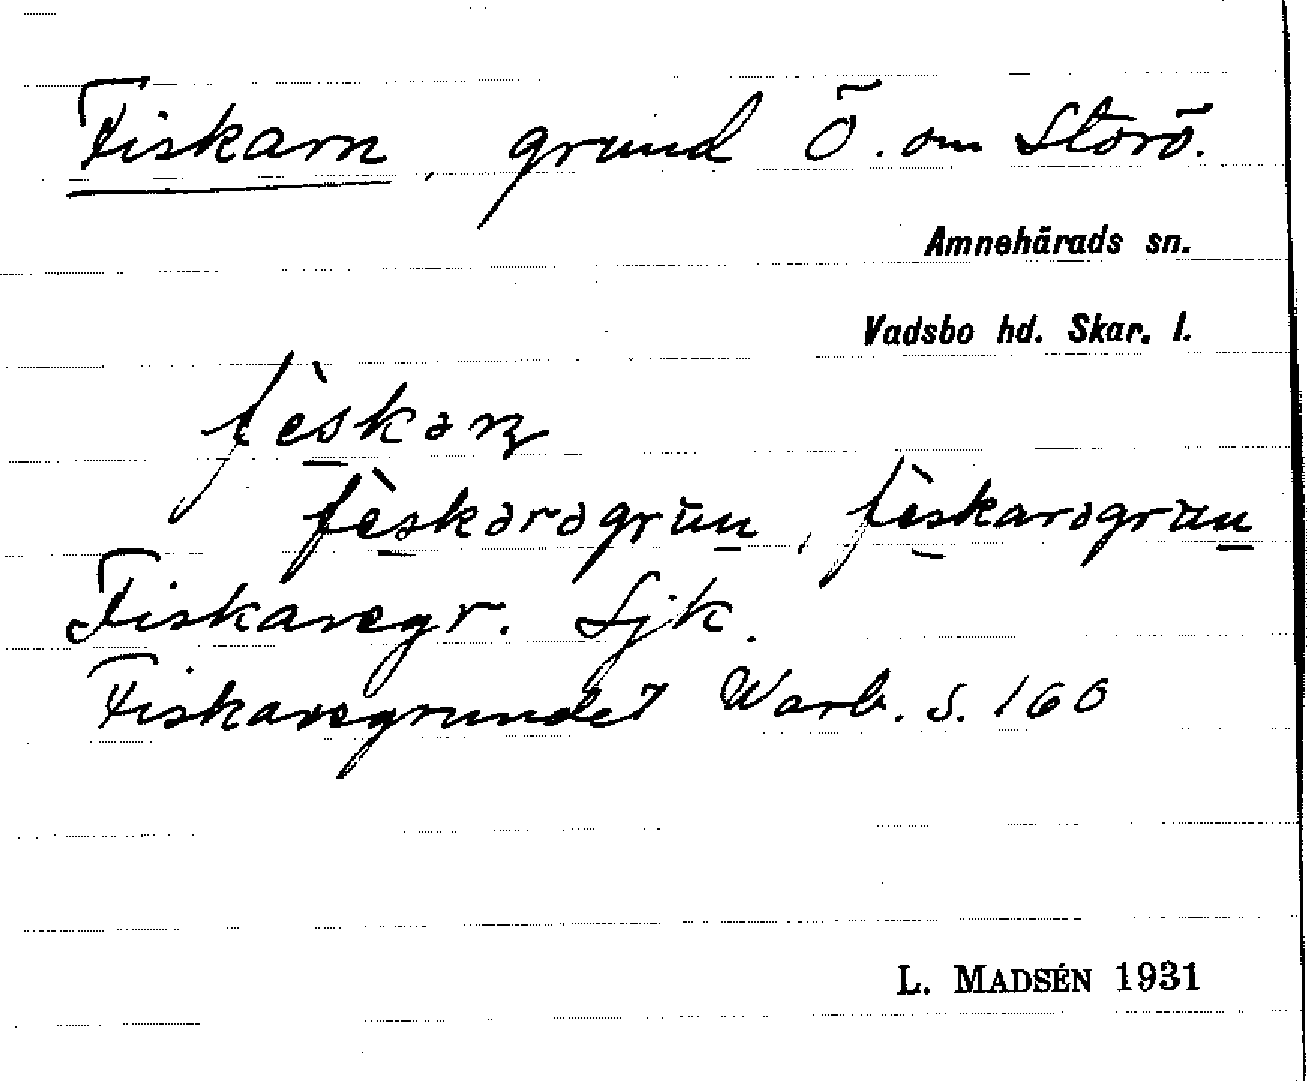 Fiskarn, grund Ö. om Storö.
Amnehärads sn.
Vadsbo hd. Skar. l.
fèskaɳ
fèskərəgrūn, fèskarəgrūn
Fiskaregr. Sjk.
Fiskaregrundet Warb. s. 160
L. MADSÉN 1931